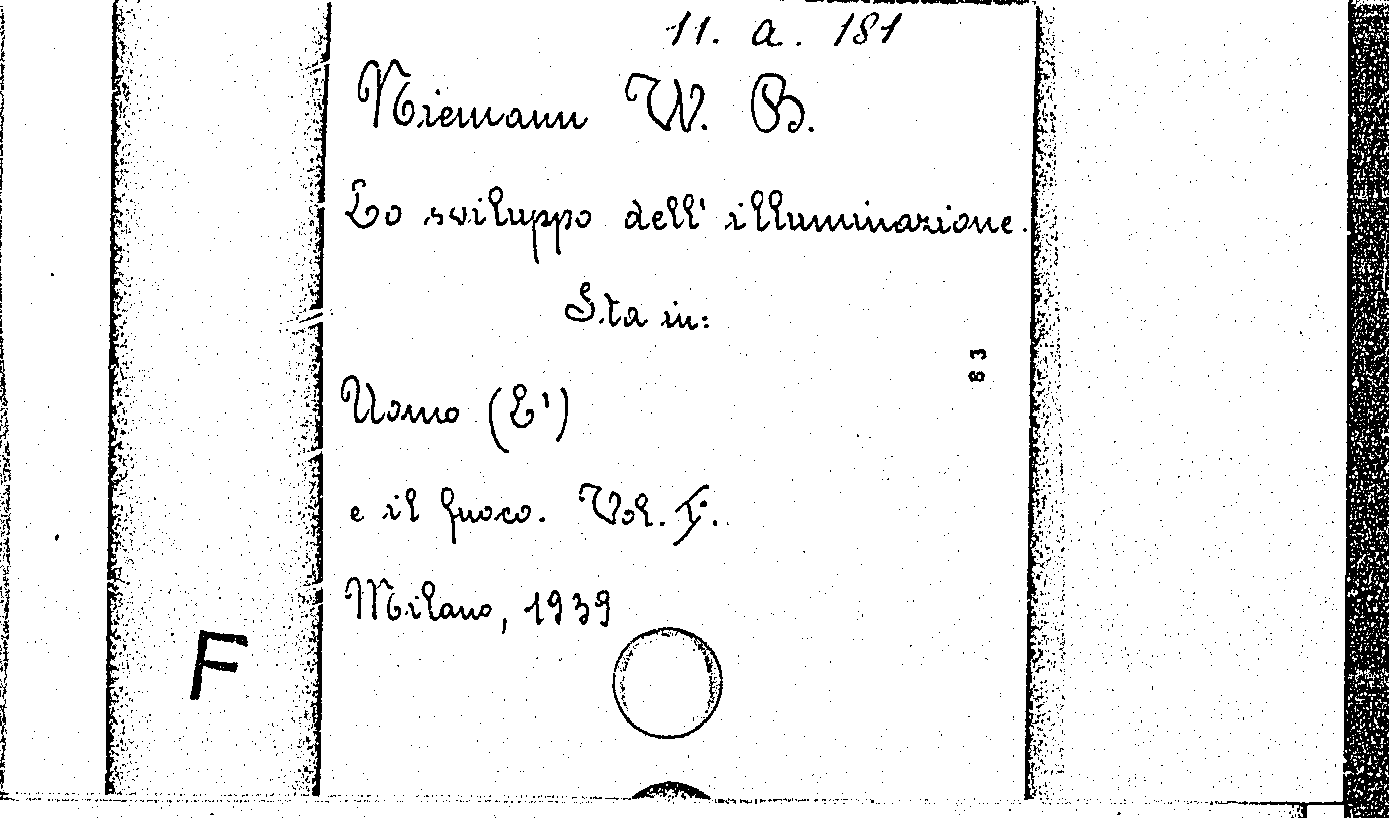 11. a. 181
Niemann W. B.
Lo sviluppo dell' illuminazione.
Sta in:
63
Uomo (L')
e il fuoco. Vol. I.
Milano, 1939
F